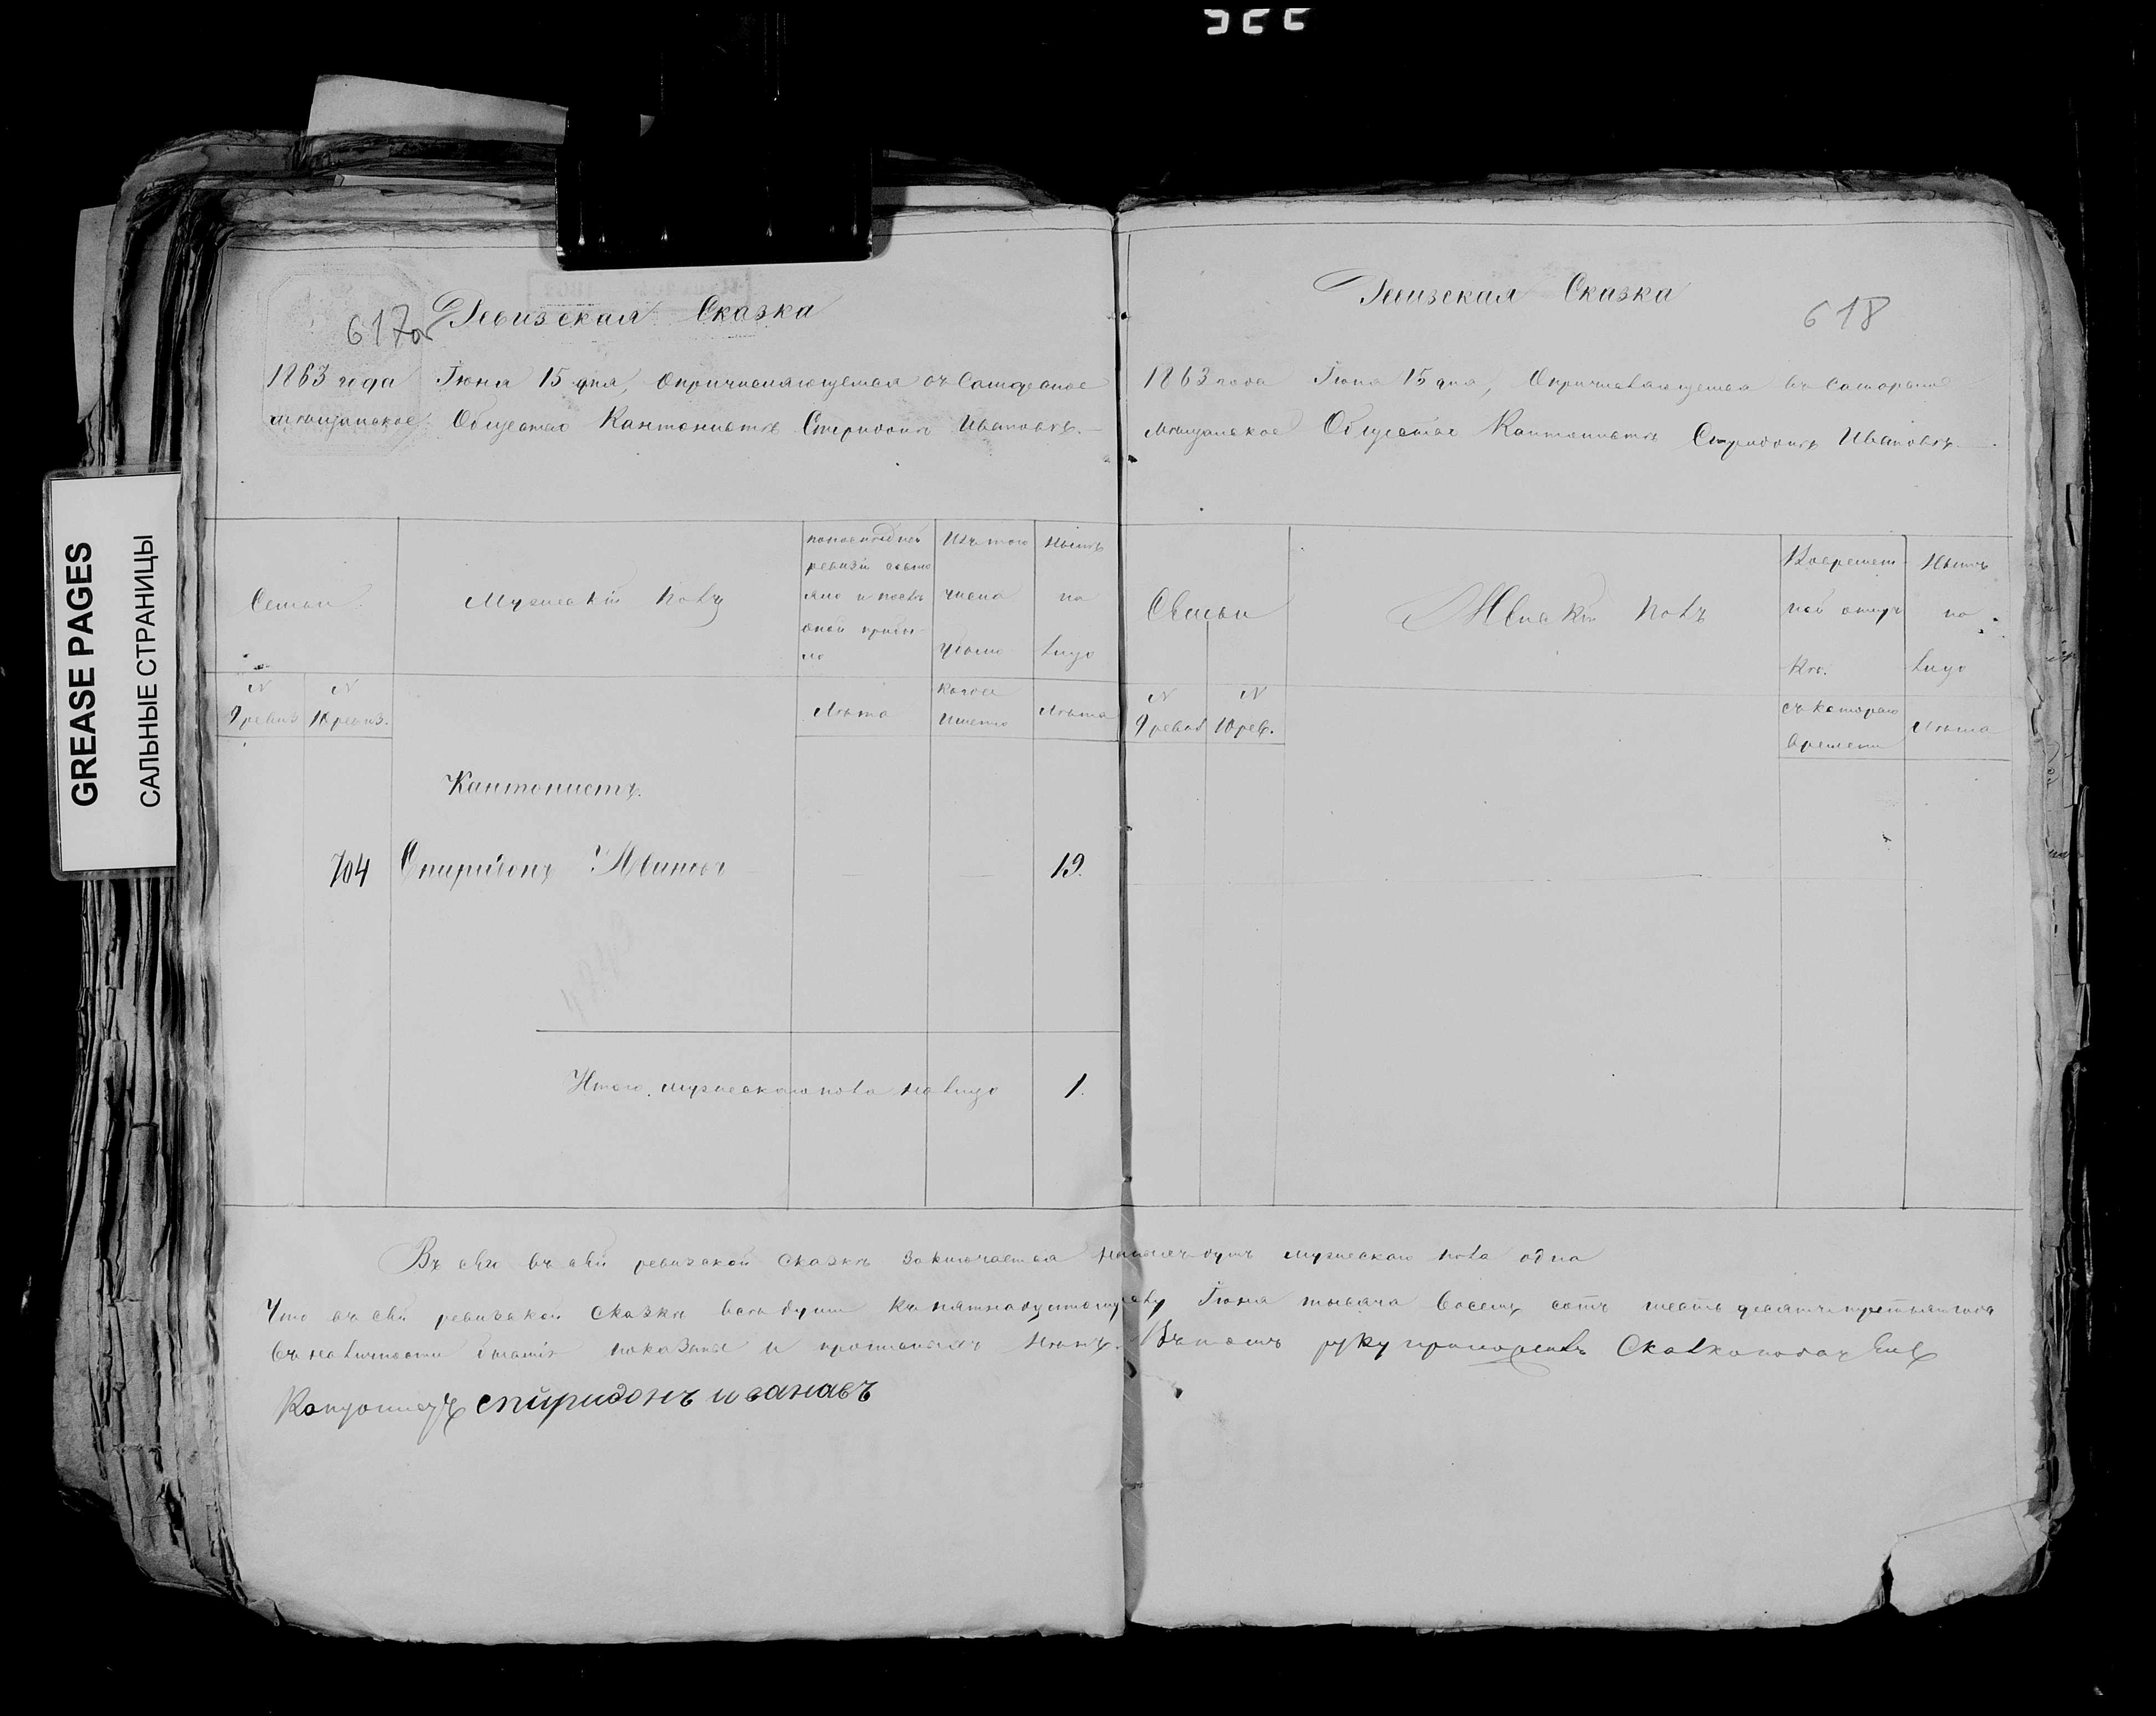 GREASE PAGES
САЛЬНЫЕ СТРАНИЦЫ
617об
Ревизская Сказка
1863 года Іюня 15 дня, Опричисляющемся въ Самарское
мѣщанское Общество Кантонистѣ Спиридонѣ Ивановѣ.
Семьи
Мужескій полъ
по последней
ревизіи состо
яло и послѣ
оной прибы-
ло
Изъ того
числа
убыло
Нынѣ
на
лицо
N
9 ревиз
N
10 ревиз.
Лѣта
Когда
Имено
Лѣта
Кантонистъ.
704 Спиридонъ Ивановъ 19.
Итого мужескаго пола на лицо 1.
618
Ревизская Сказка
1863 года Іюня 15 дня, Опричисляющемся въ Самарское
мѣщанское Общество Кантонистѣ Спиридонѣ Ивановѣ.
Семьи
Женскій полъ
Во времен
ной отлуч
кѣ.
Нынѣ
на
лицо
N
9 ревиз
N
10 рев.
съ котораго
времени
Лѣта
въ сей ревизской сказкѣ заключается душъ мужескаго пола одна
Что въ сей ревизской сказки всѣ души къ пятнадцатому Іюня тысяча восемь сотъ шесть десятъ третьяго года
въ наличности показаны и прописныхъ нѣтъ. Въ томъ руку приложилъ Сказкоподачецъ
Контонистъ спиридонъ иванавъ